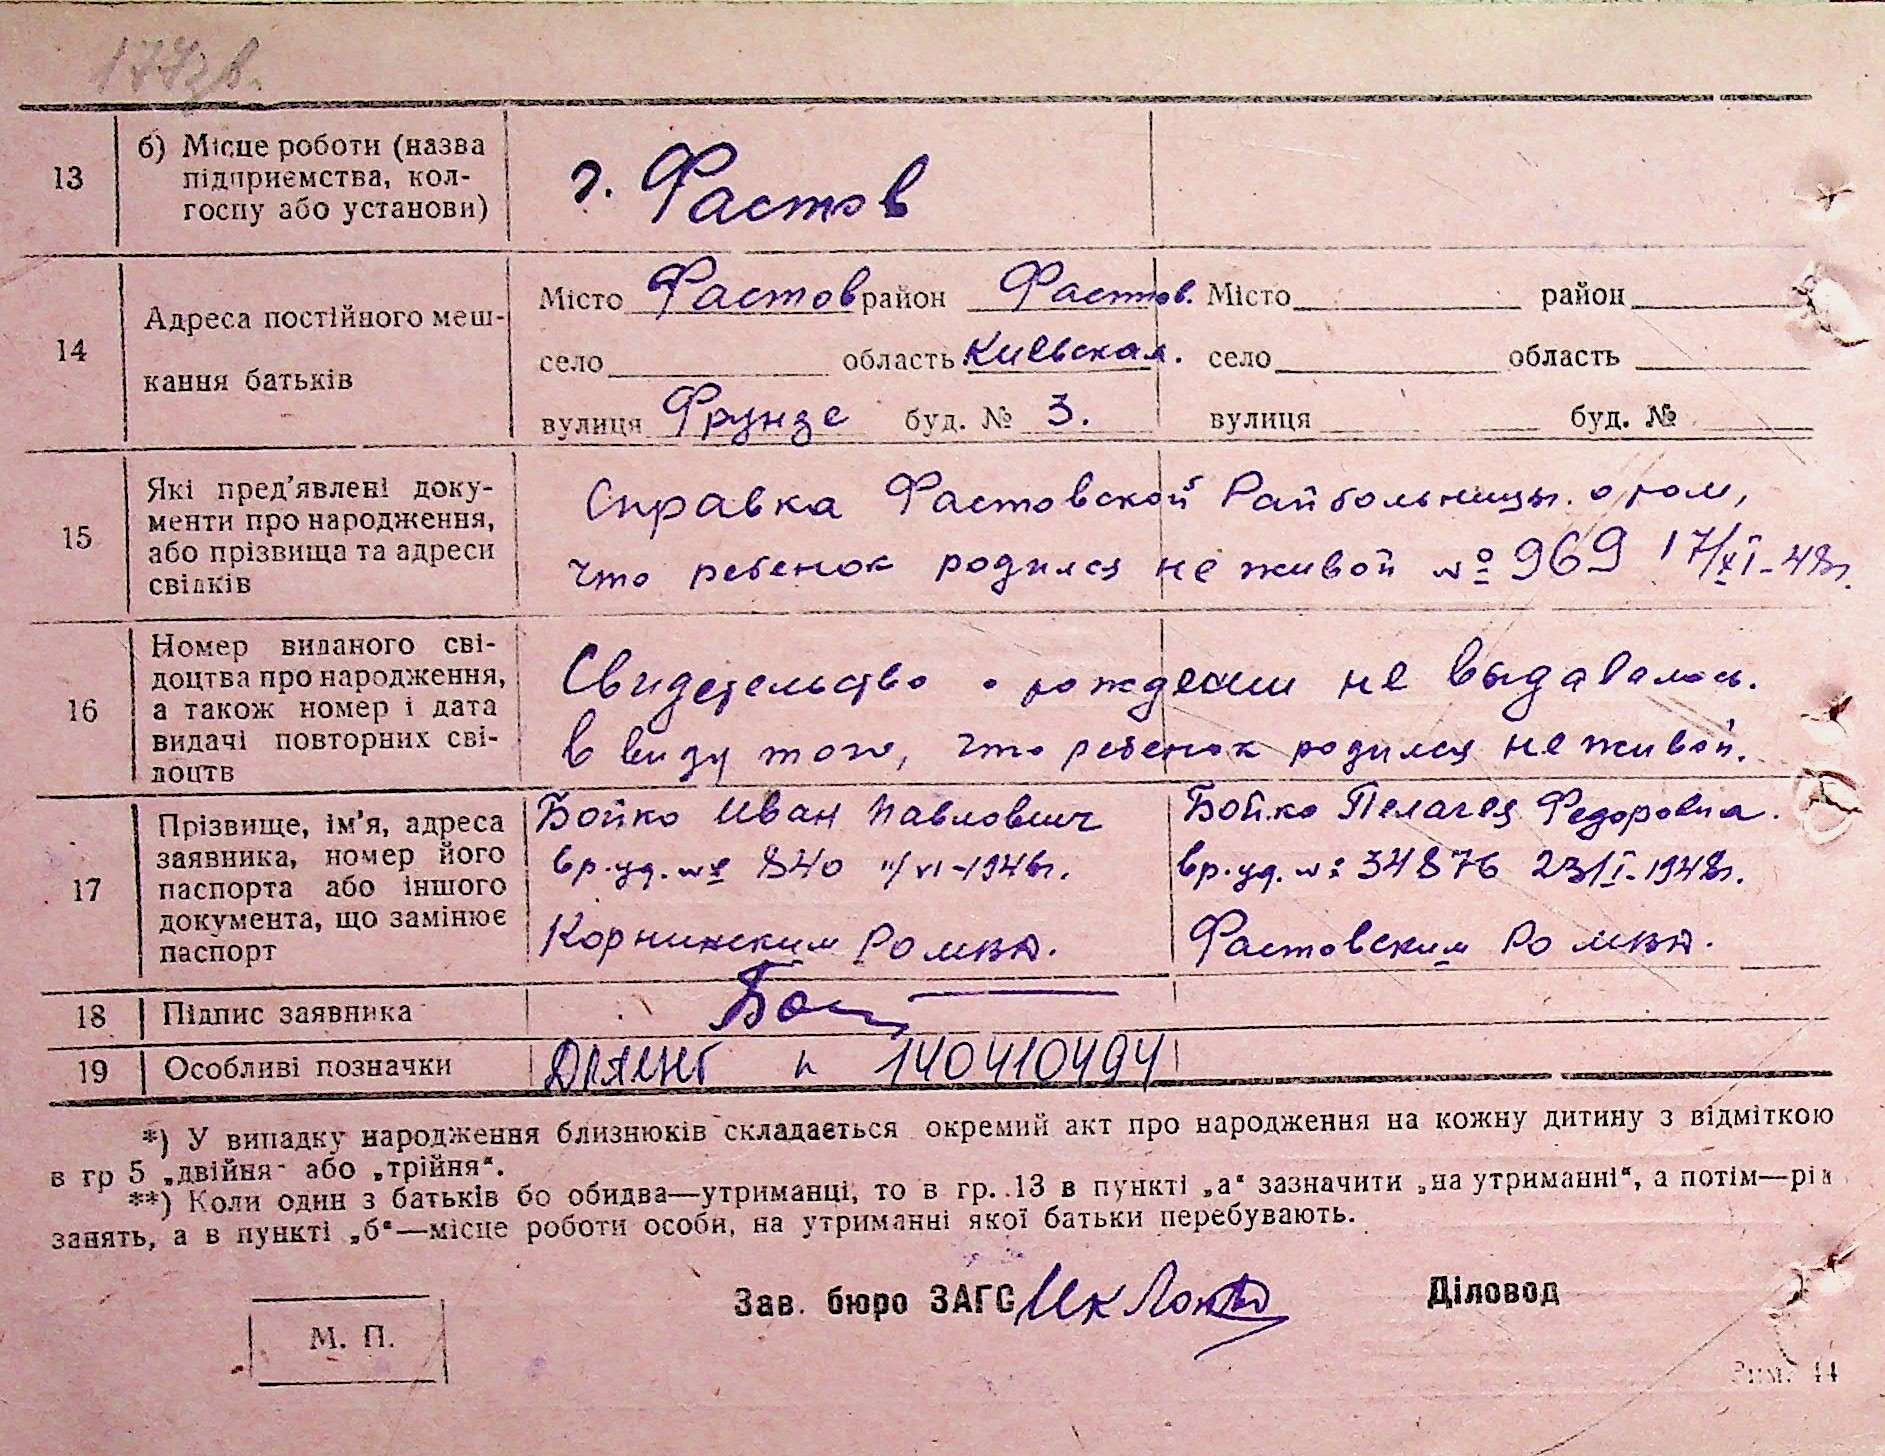 177зв.
13 б) Місце роботи (назва підприємства, кол-госпу або установи) г. Фастов
14 Адреса постійного меш-кання батьків
Місто Фастов район Фастов. Місто район
село область Киевская. село область
вулиця Фрунзе буд. № 3. вулиця буд. №
15 Які пред'явлені доку-менти про народження, або прізвища та адреси свідків
Справка Фастовской Райбольницы о том,
что ребенок родился не живой № 969 17/XI-48г.
16 Номер виданого сві-доцтва про народження, а також номер і дата видачі повторних сві-доцтв
Свидетельство о рождении не выдавалось.
в виду того, что ребенок родился не живой.
17 Прізвище, ім'я, адреса заявника, номер його паспорта або іншого документа, що замінює паспорт
Бойко Иван Павлович
вр. уд. № 840 11/VI-1946г.
Корнинским РО МВД.
Бойко Пелагея Федоровна.
вр. уд. № 34876 23/I-1948г.
Фастовским РО МВД.
18 Підпис заявника Бой
19 Особливі позначки 140410494
*) У випадку народження близнюків складається окремий акт про народження на кожну дитину з відміткою
в гр 5 „двійня" або „трійня".
**) Коли один з батьків бо обидва—утриманці, то в гр. 13 в пункті „а" зазначити „на утриманні", а потім—рід
занять, а в пункті „б"—місце роботи особи, на утриманні якої батьки перебувають.
Зав. бюро ЗАГС Діловод
М. П.
44